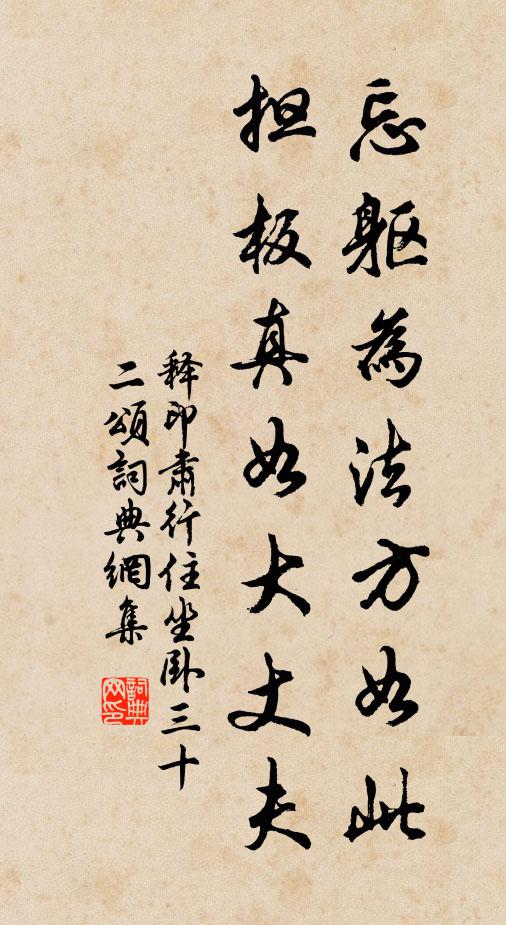 忘軀為法方如此
担板真如大丈夫
释印肅行住坐卧三十
二頌詞典網集
詞典网印